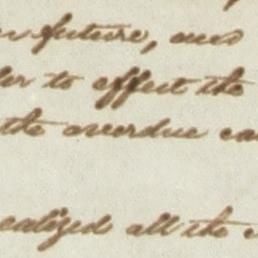 future, and
to effect the
the overdue
realized all the